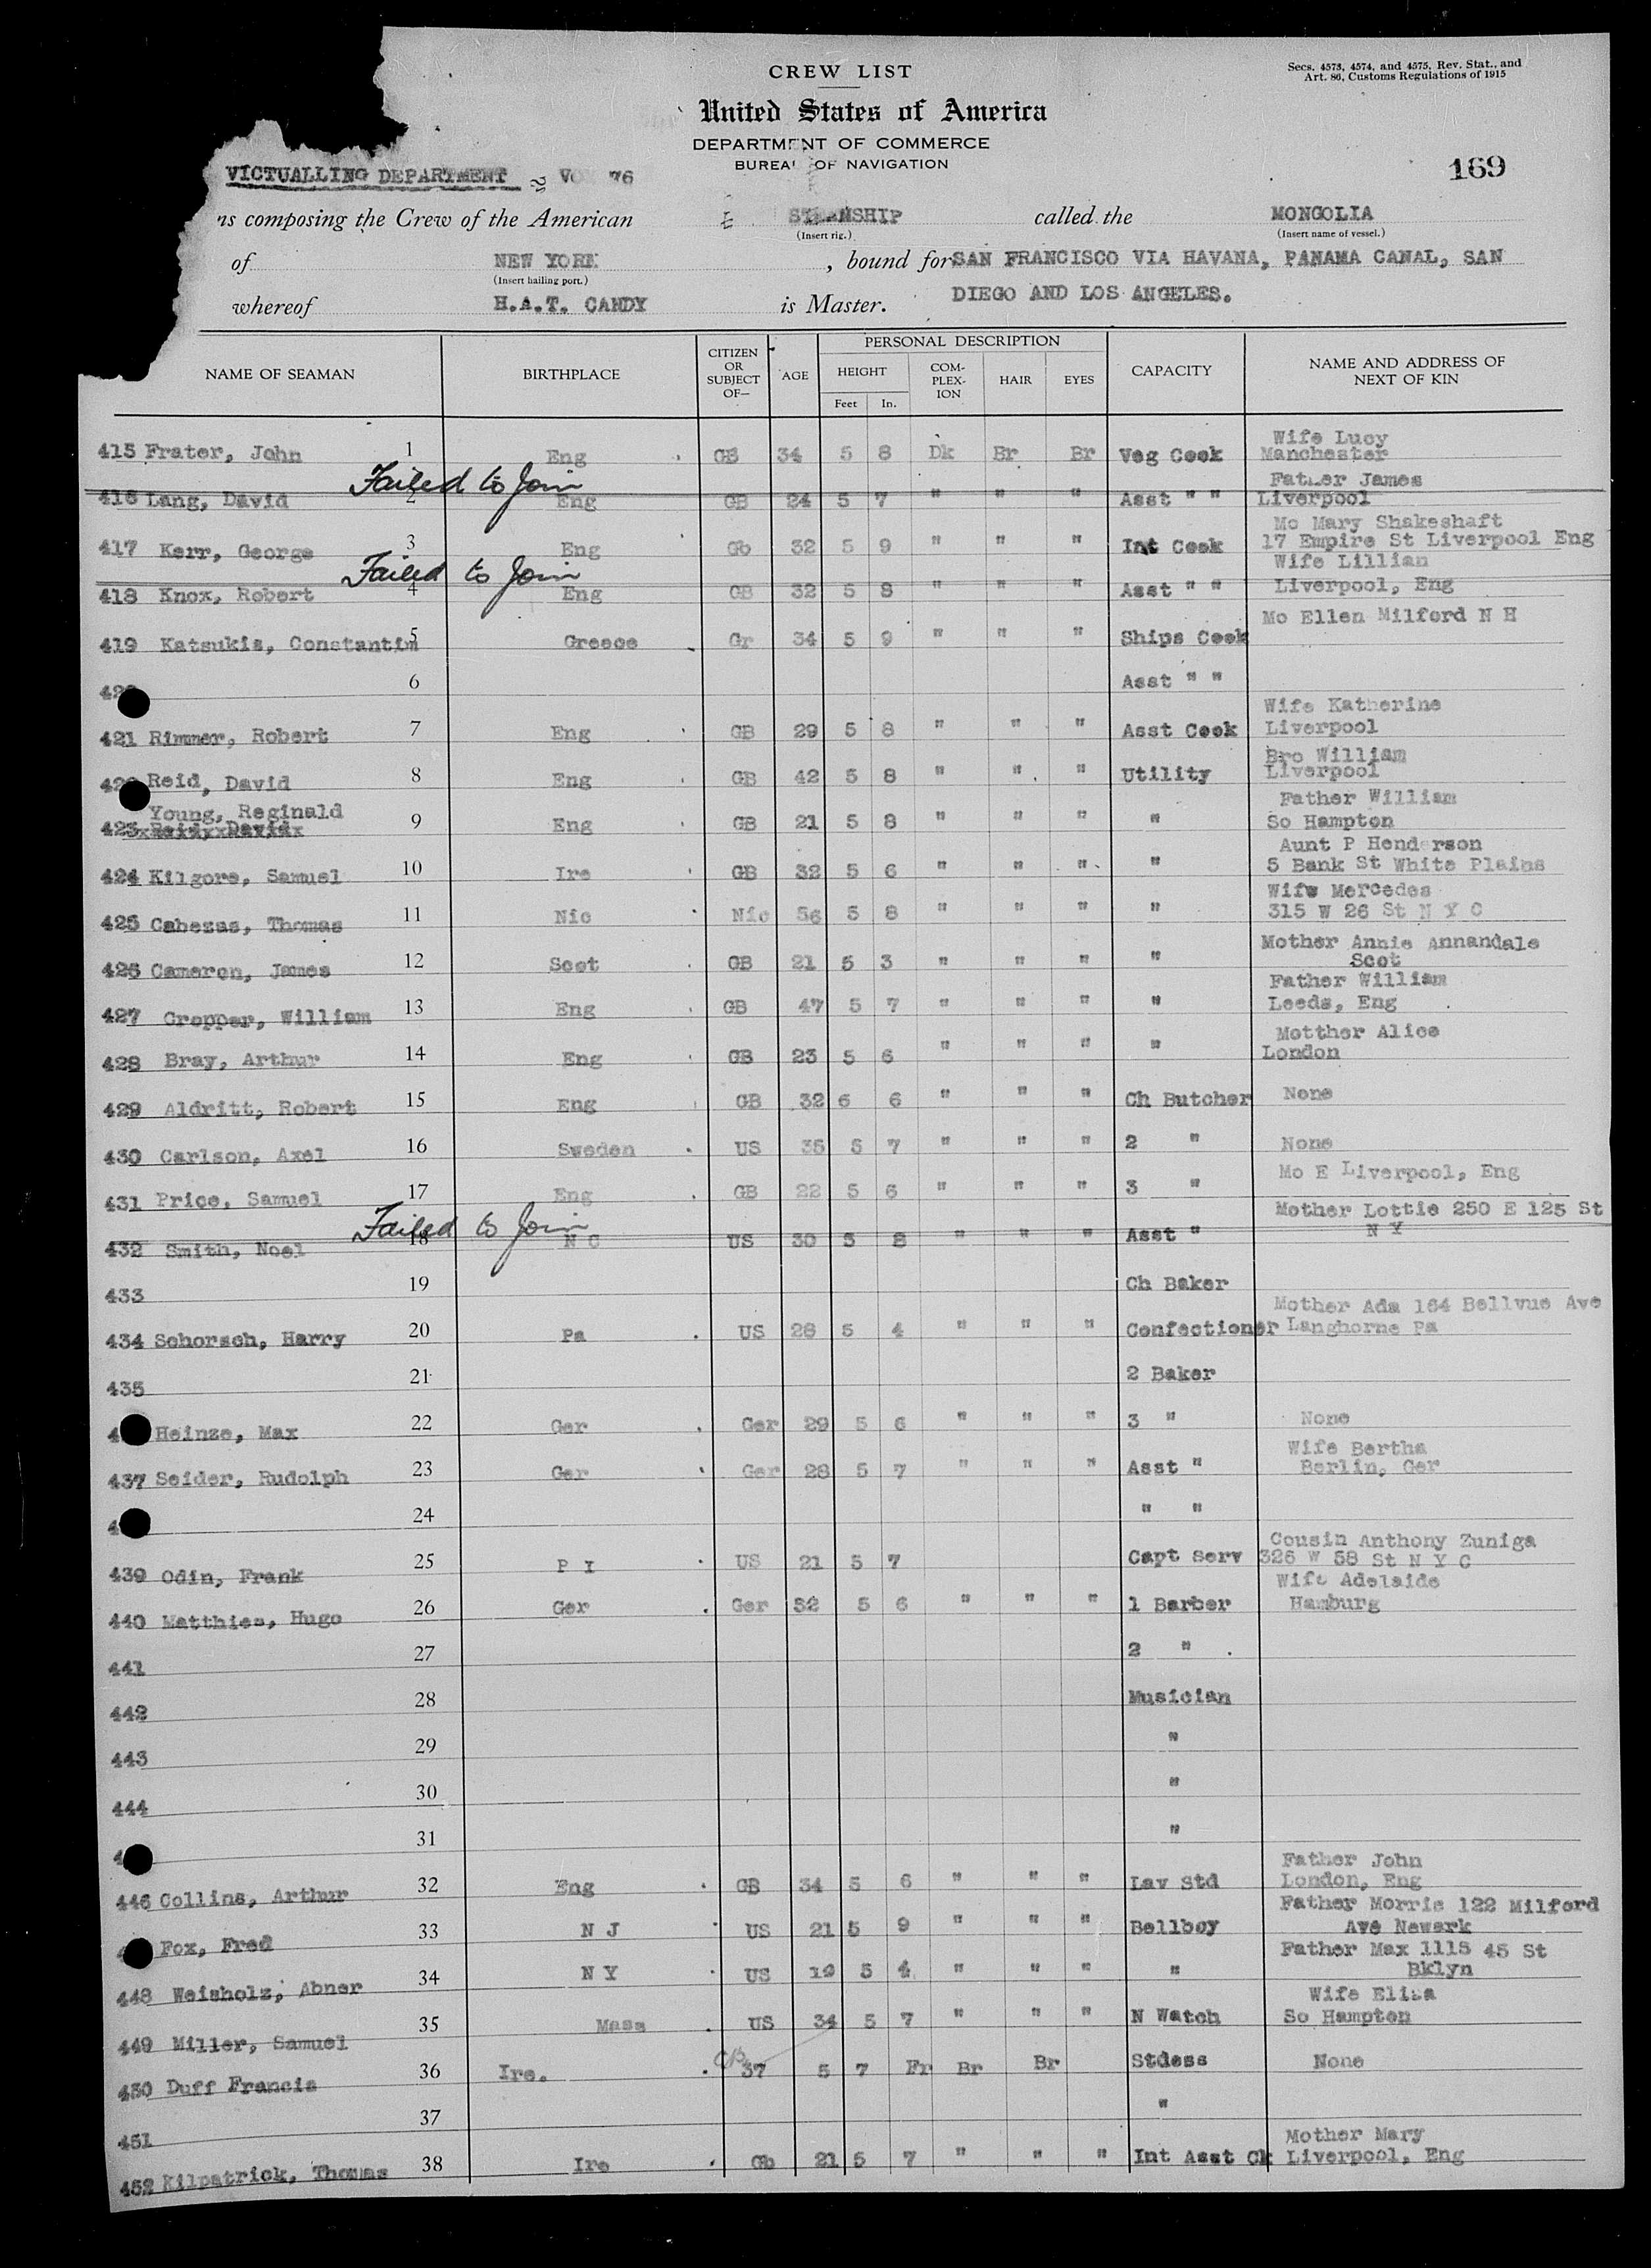 CREW LIST
Secs. 4573, 4574, and 4575, Rev. Stat., and
Art. 86, Customs Regulations of 1915
United States of America
DEPARTMENT OF COMMERCE
BUREAU OF NAVIGATION
VICTUALLING DEPARTMENT 76
169
ns composing the Crew of the American STEAMSHIP called the MONGOLIA
(Insert rig.) (Insert name of vessel.)
of NEW YORK , bound for SAN FRANCISCO VIA HAVANA, PANAMA CANAL, SAN
(Insert hailing port.)
whereof H.A.T. CANDY is Master. DIEGO AND LOS ANGELES.
NAME OF SEAMAN BIRTHPLACE CITIZEN OR SUBJECT OF— AGE PERSONAL DESCRIPTION CAPACITY NAME AND ADDRESS OF NEXT OF KIN
HEIGHT COM-PLEX-ION HAIR EYES
Feet In.
415 Frater, John 1 Eng GB 34 5 8 Dk Br Br Veg Cook Wife Lucy Manchester
Failed to Join
416 Lang, David 2 Eng GB 24 5 7 " " " Asst " " Father James Liverpool
417 Kerr, George 3 Eng Gb 32 5 9 " " " Int Cook Mo Mary Shakeshaft 17 Empire St Liverpool Eng
Failed to Join
418 Knox, Robert 4 Eng GB 32 5 8 " " " Asst " " Wife Lillian Liverpool, Eng
419 Katsukis, Constantin 5 Greece Gr 34 5 9 " " " Ships Cook Mo Ellen Milford N H
42 6 Asst " "
421 Rimmer, Robert 7 Eng GB 29 5 8 " " " Asst Cook Wife Katherine Liverpool
42 Reid, David 8 Eng GB 42 5 8 " " " Utility Bro William Liverpool
Young, Reginald
423 Reid, David 9 Eng GB 21 5 8 " " " " Father William So Hampton
424 Kilgore, Samuel 10 Ire GB 32 5 6 " " " " Aunt P Henderson 5 Bank St White Plains
425 Cabezas, Thomas 11 Nic Nic 56 5 8 " " " " Wife Mercedes 315 W 26 St N Y C
426 Cameron, James 12 Scot GB 21 5 3 " " " " Mother Annie Annandale Scot
427 Cropper, William 13 Eng GB 47 5 7 " " " " Father William Leeds, Eng
428 Bray, Arthur 14 Eng GB 23 5 6 " " " " Motther Alice London
429 Aldritt, Robert 15 Eng GB 32 6 6 " " " Ch Butcher None
430 Carlson, Axel 16 Sweden US 35 5 7 " " " 2 " None
431 Price, Samuel 17 Eng GB 22 5 6 " " " 3 " Mo E Liverpool, Eng
Failed to Join
432 Smith, Noel 18 N C US 30 5 8 " " " Asst " Mother Lottie 250 E 125 St N Y
433 19 Ch Baker
434 Schorsch, Harry 20 Pa US 28 5 4 " " " Confectioner Mother Ada 164 Bellvue Ave Langhorne Pa
435 21 2 Baker
4 Heinze, Max 22 Ger Ger 29 5 6 " " " 3 " None
437 Seider, Rudolph 23 Ger Ger 28 5 7 " " " Asst " Wife Bertha Berlin, Ger
4 24 " "
439 Odin, Frank 25 P I US 21 5 7 Capt Serv Cousin Anthony Zuniga 326 W 58 St N Y C
440 Matthies, Hugo 26 Ger Ger 32 5 6 " " " 1 Barber Wife Adelaide Hamburg
441 27 2 "
442 28 Musician
443 29 "
444 30 "
4 31 "
446 Collins, Arthur 32 Eng GB 34 5 6 " " " Lav Std Father John London, Eng
Fox, Fred 33 N J US 21 5 9 " " " Bellboy Father Morris 122 Milford Ave Newark
448 Weisholz, Abner 34 N Y US 19 5 4 " " " " Father Max 1115 45 St Bklyn
449 Miller, Samuel 35 Mass US 34 5 7 " " " N Watch Wife Eliza So Hampton
450 Duff Francis 36 Ire. GB 37 5 7 Fr Br Br Stdess None
451 37 "
452 Kilpatrick, Thomas 38 Ire Gb 21 5 7 " " " Int Asst Ck Mother Mary Liverpool, Eng